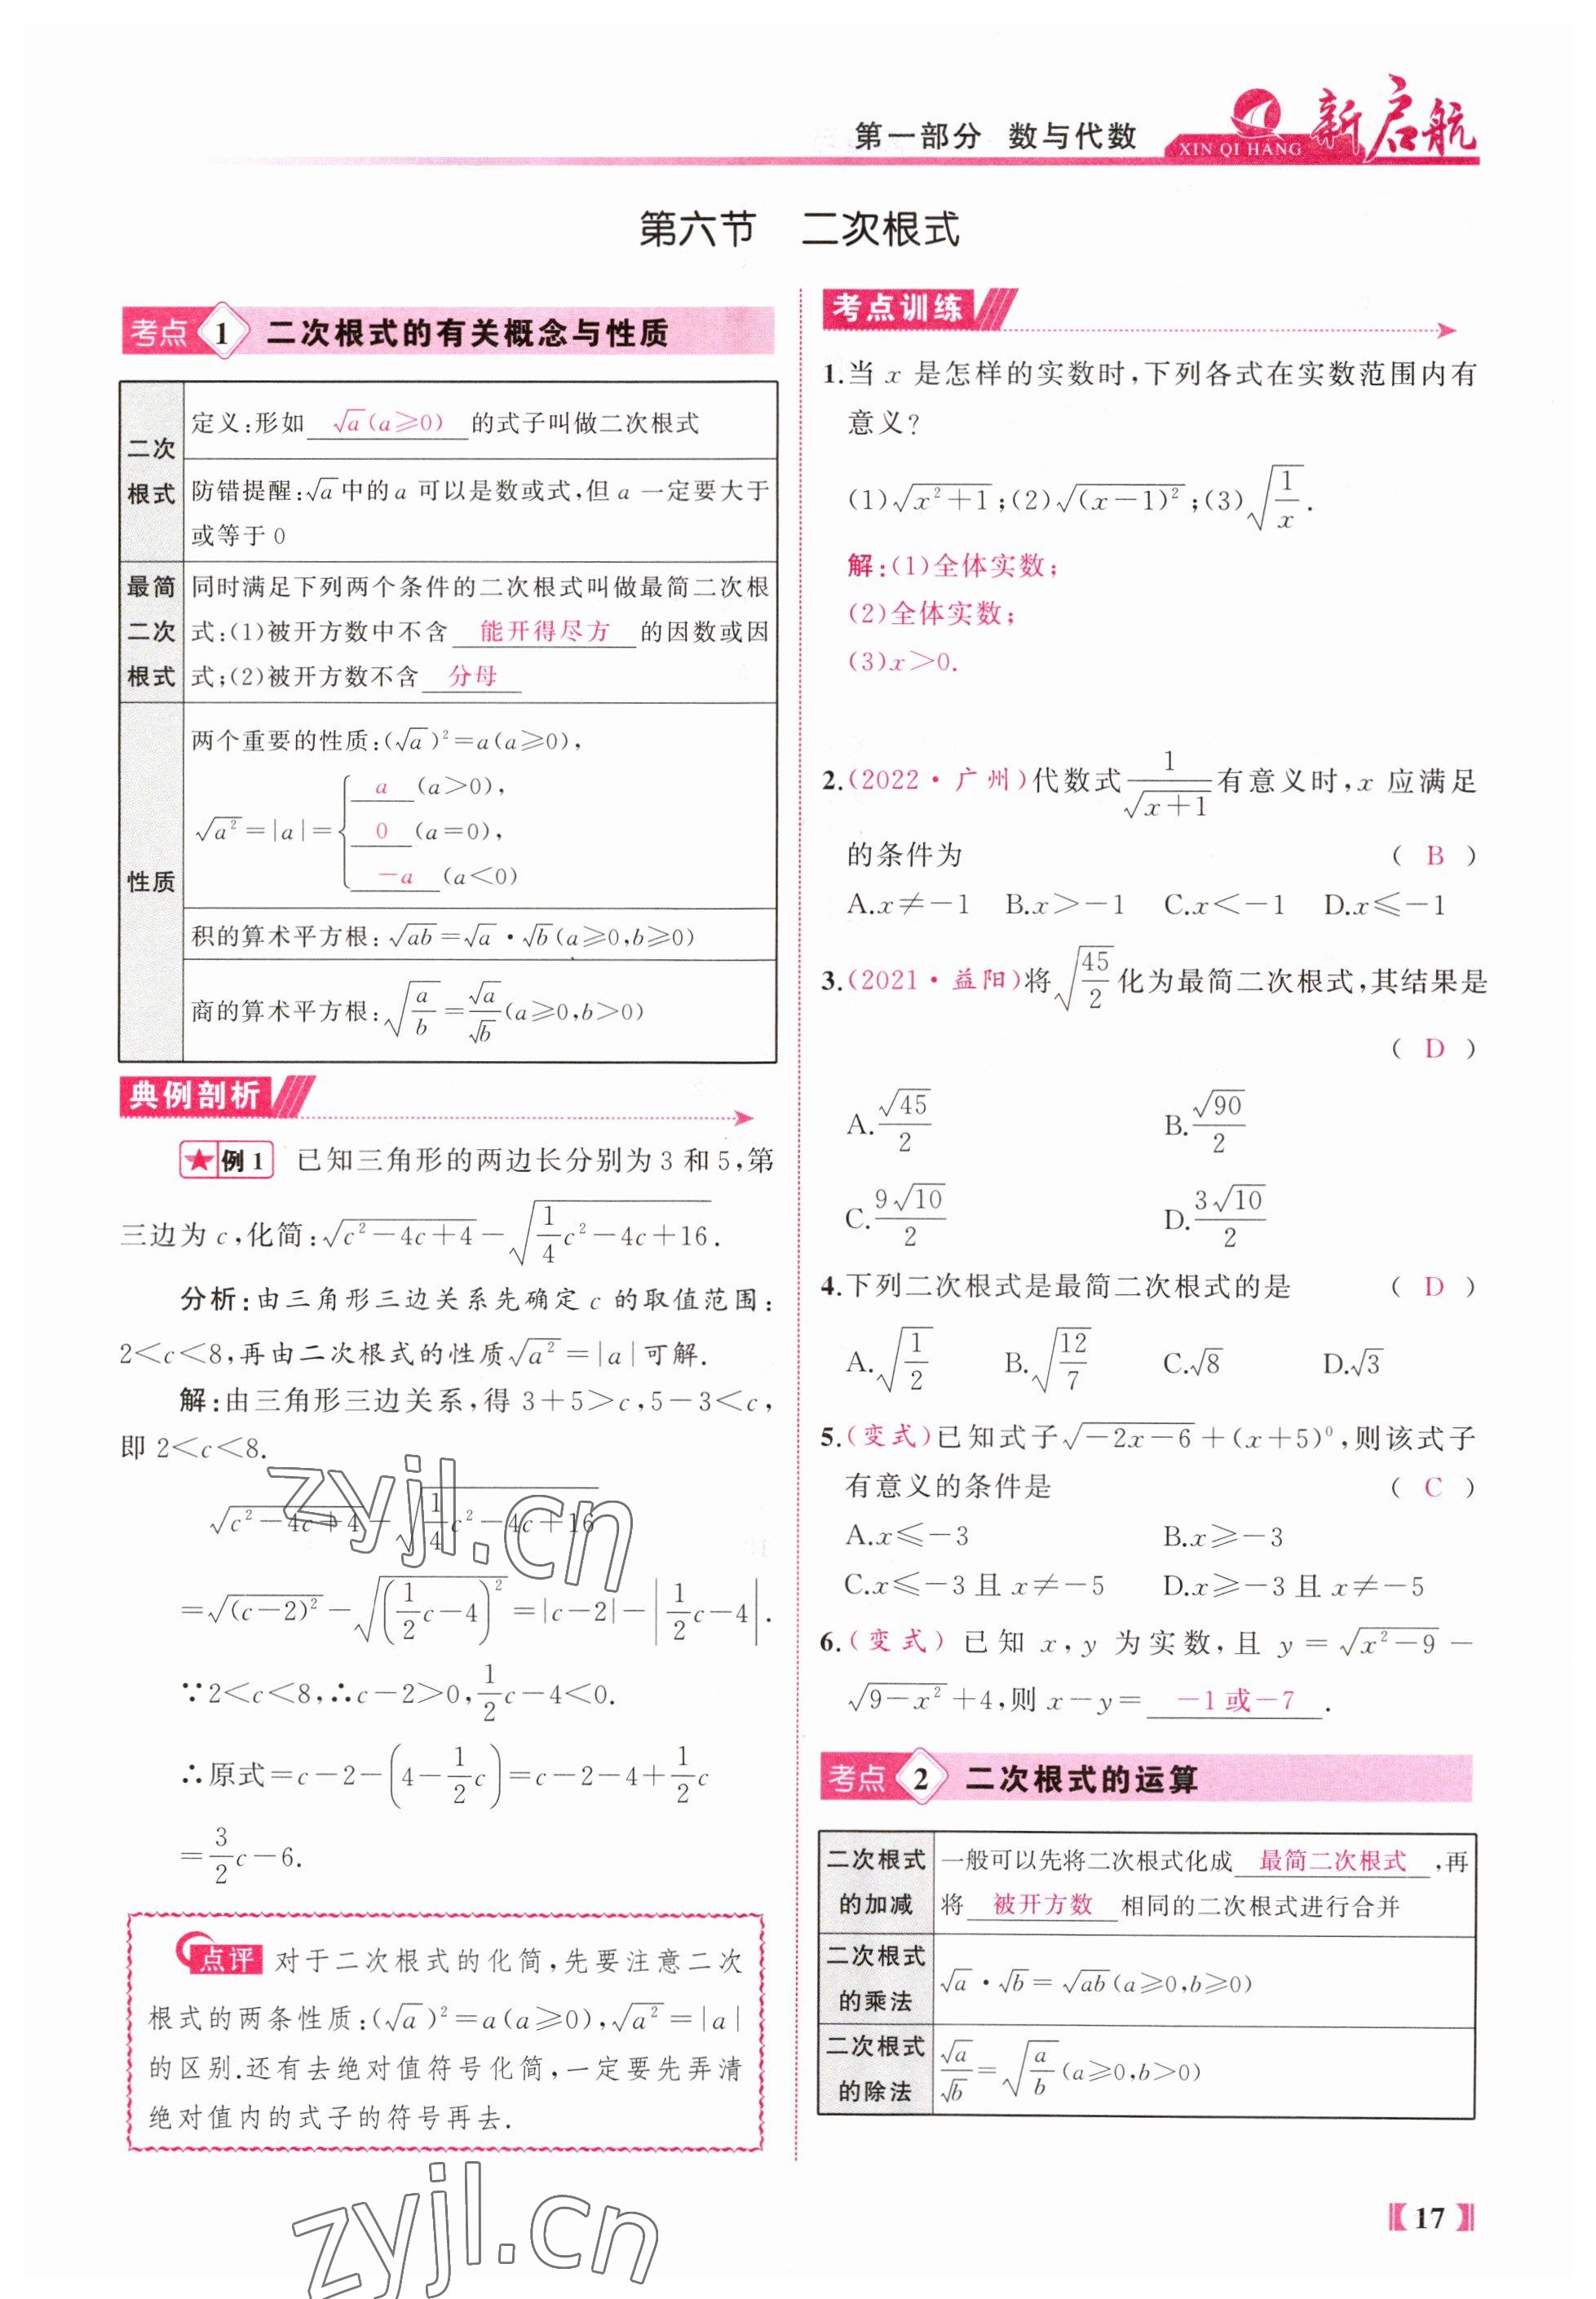 第一部分 数与代数
XIN QI HANG 新启航
第六节 二次根式
考点 1 二次根式的有关概念与性质
二次根式
定义:形如 √a(a≥0) 的式子叫做二次根式
防错提醒:√a中的a 可以是数或式,但 a 一定要大于
或等于 0
最简二次根式
同时满足下列两个条件的二次根式叫做最简二次根
式:(1)被开方数中不含 能开得尽方 的因数或因
式;(2)被开方数不含 分母
性质
两个重要的性质:(√a)²=a(a≥0),
√(a²)=|a|={ a (a>0),
0 (a=0),
-a (a<0)
积的算术平方根:√(ab)=√a·√b(a≥0,b≥0)
商的算术平方根:√(a/b)=√a/√b(a≥0,b>0)
典例剖析
★例1 已知三角形的两边长分别为3 和5,第
三边为 c,化简:√(c²-4c+4)-√(1/4c²-4c+16).
分析:由三角形三边关系先确定 c 的取值范围:
2<c<8,再由二次根式的性质√(a²)=|a|可解.
解:由三角形三边关系,得 3+5>c,5-3<c,
即 2<c<8.
√(c²-4c+4)-√(1/4c²-4c+16)
=√((c-2)²)-√((1/2c-4)²)=|c-2|-|1/2c-4|.
∵2<c<8,∴c-2>0,1/2c-4<0.
∴原式=c-2-(4-1/2c)=c-2-4+1/2c
=3/2c-6.
点评 对于二次根式的化简,先要注意二次
根式的两条性质:(√a)²=a(a≥0),√(a²)=|a|
的区别.还有去绝对值符号化简,一定要先弄清
绝对值内的式子的符号再去.
考点训练
1.当 x 是怎样的实数时,下列各式在实数范围内有
意义?
(1)√(x²+1);(2)√((x-1)²);(3)√(1/x).
解:(1)全体实数;
(2)全体实数;
(3)x>0.
2.(2022·广州)代数式1/√(x+1)有意义时,x 应满足
的条件为 ( B )
A.x≠-1 B.x>-1 C.x<-1 D.x≤-1
3.(2021·益阳)将√(45/2)化为最简二次根式,其结果是
( D )
A.√45/2 B.√90/2
C.9√10/2 D.3√10/2
4.下列二次根式是最简二次根式的是 ( D )
A.√(1/2) B.√(12/7) C.√8 D.√3
5.(变式)已知式子√(-2x-6)+(x+5)⁰,则该式子
有意义的条件是 ( C )
A.x≤-3 B.x≥-3
C.x≤-3 且 x≠-5 D.x≥-3 且 x≠-5
6.(变式)已知 x,y 为实数,且 y=√(x²-9)-
√(9-x²)+4,则 x-y= -1或-7 .
考点 2 二次根式的运算
二次根式的加减
一般可以先将二次根式化成 最简二次根式 ,再
将 被开方数 相同的二次根式进行合并
二次根式的乘法
√a·√b=√(ab)(a≥0,b≥0)
二次根式的除法
√a/√b=√(a/b)(a≥0,b>0)
zyjl.cn
zyjl.cn
【17】